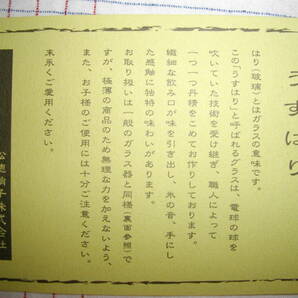 うすはり
はり（玻璃）とはガラスの意味です。
この「うすはり」と呼ばれるグラスは、電球の球を
吹いていた技術を受け継ぎ、職人によって
一つ一つ丹精をこめてお作りしております。
繊細な飲み口が味を引き出し、氷の音、手にし
た感触に独特の味わいがあります。
お取り扱いは一般のガラス器と同様（裏面参照）で
すが、極薄の商品のため無理な力を加えないよう、
また、お子様のご使用には十分ご注意ください。
末永くご愛用ください。
松徳硝子株式会社